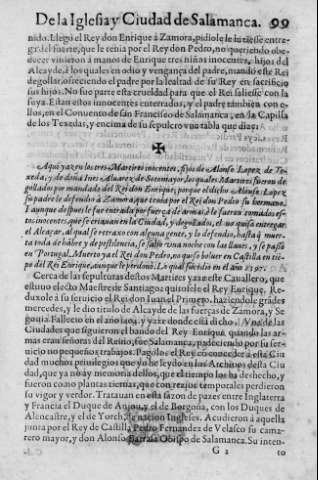 De la Iglesia y Ciudad de Salamanca. 99
nido. Llegò el Rey don Enrique à Zamora, pidiole le hiziesse entre-
ga del fuerte, que le tenia por el Rey don Pedro, no queriendo obe-
decer vinieron à manos de Enrique tres niños inocentes, hijos del
Alcayde, à los quales en odio y vengança del padre, mandò esse Rei
degollar, ofreciendo el padre por la lealtad de su Rey en sacrificio
sus hijos. No fue parte esta crueldad para que el Rei saliesse con la
suya. Estan estos innocentes enterrados, y el padre tambien con e-
llos, en el Conuento de san Francisco de Salamanca, en la Capilla
de los Texedas, y encima de su sepulcro vna tabla que diaz:
✠
Aqui yazen los tres Martires inocentes, hijos de Alonso Lopez de Te-
xeda, y de doña Ines Aluarez de Sotomayor, los quales Martires fueron de-
gollados por mandado del Rei don Enrique, porque el dicho Alonso Lopez
su padre le defendio à Zamora, que tenia por el Rei don Pedro su hermano.
Y aunque despues fue entrada por fuerça de armas, è le fueron tomados es-
tos inocentes, que se criauan en la Ciudad, y degollados, el no quiso entregar
el Alcaçar, al qual se retraxo con alguna gente, y lo defendio, hasta que muer-
ta toda de hãbre y de pestilencia, se salio vna noche con las llaues, y se passò
en Portugal. Muerto ya el Rei don Pedro, no quiso boluer en Castilla en tie-
po del Rei Enrique, aunque le perdonò. Lo qual sucedio en el año 1397.
Cerca de las sepulturas destos Martires yaze este Cauallero, que
estuuo electo Maestre de Santiago: quitosele el Rey Enrique. Re-
duxole à su seruicio el Rei don Iuan el Primero, haziendole grãdes
mercedes, y le dio titulo de Alcayde de las fuerças de Zamora, y Se-
gouia. Fallecio en el año 1404. y yaze donde està dicho. Vna de las
Ciudades que siguieron el bando del Rey Enrique, quando las ar-
mas eran señoras del Reino, fue Salamanca, padeciendo por su ser-
uicio no pequeños trabajos. Pagòlos el Rey en conceder à esta Ciu
dad muchos preuilegios que yo he leydo en los Archiuos desta Ciu
dad, que ya no ay memoria dellos, que el tiempo los ha deshecho, y
fueron como plantas tiernas, que con rezios temporales perdieron
su vigor y verdor. Tratauan en esta sazon de pazes entre Inglaterra
y Francia el Duque de Anjou, y el de Borgoña, con los Duques de
Alencastre, y el de Yorch, de nacion Ingleses. Acudieron à aquella
junta por el Rey de Castilla Pedro Fernandez de Velasco su cama-
rero mayor, y don Alonso Barrasa Obispo de Salamanca. Su inten-
G 2 to